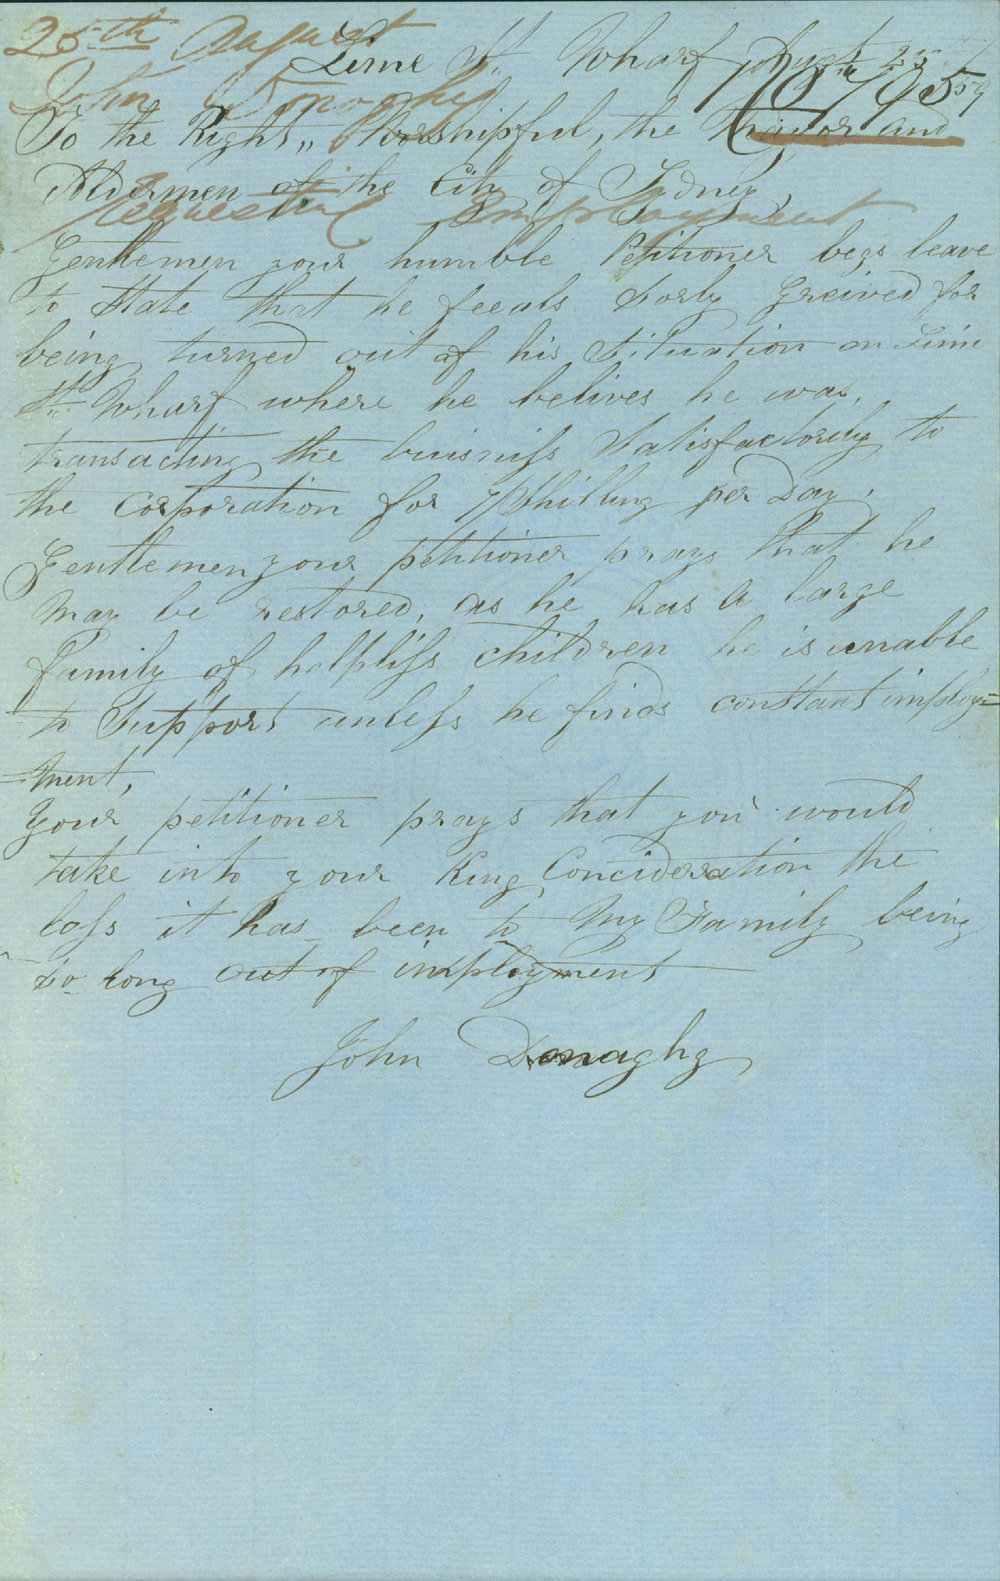 25th August
John Donaghy
requesting Employment
Lime St. Wharf August 25th /59
To the Right,, Worshipful, the Mayor and
Aldermen of the City of Sydney,
Gentlemen your humble Petitioner begs leave
to State that he feeals Sorly Greived for
being turned out of his Situation on Lime
St. Wharf where he belives he was,
transacting the buisniss Satisfactorely to
the Corporation for 7/Shilling per Day,
Gentlemen your petitioner prays that he
May be restored, as he has A large
family of helpliss children he is unable
to Support unless he finds constant imploy=
=ment,
Your petitioner prays that you would
take into your King Concideration the
loss it has been to My Family being
so long out of imployment
John Donaghy